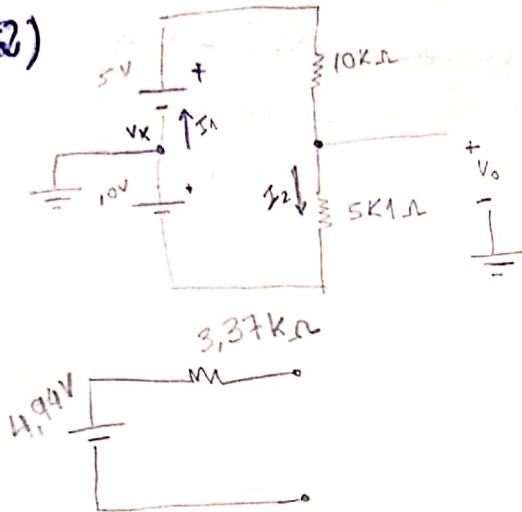 2)
5V
+
-
10KΩ
VX
I1
10V
+
I2
5K1Ω
+
Vo
-
3,37KΩ
4,94V